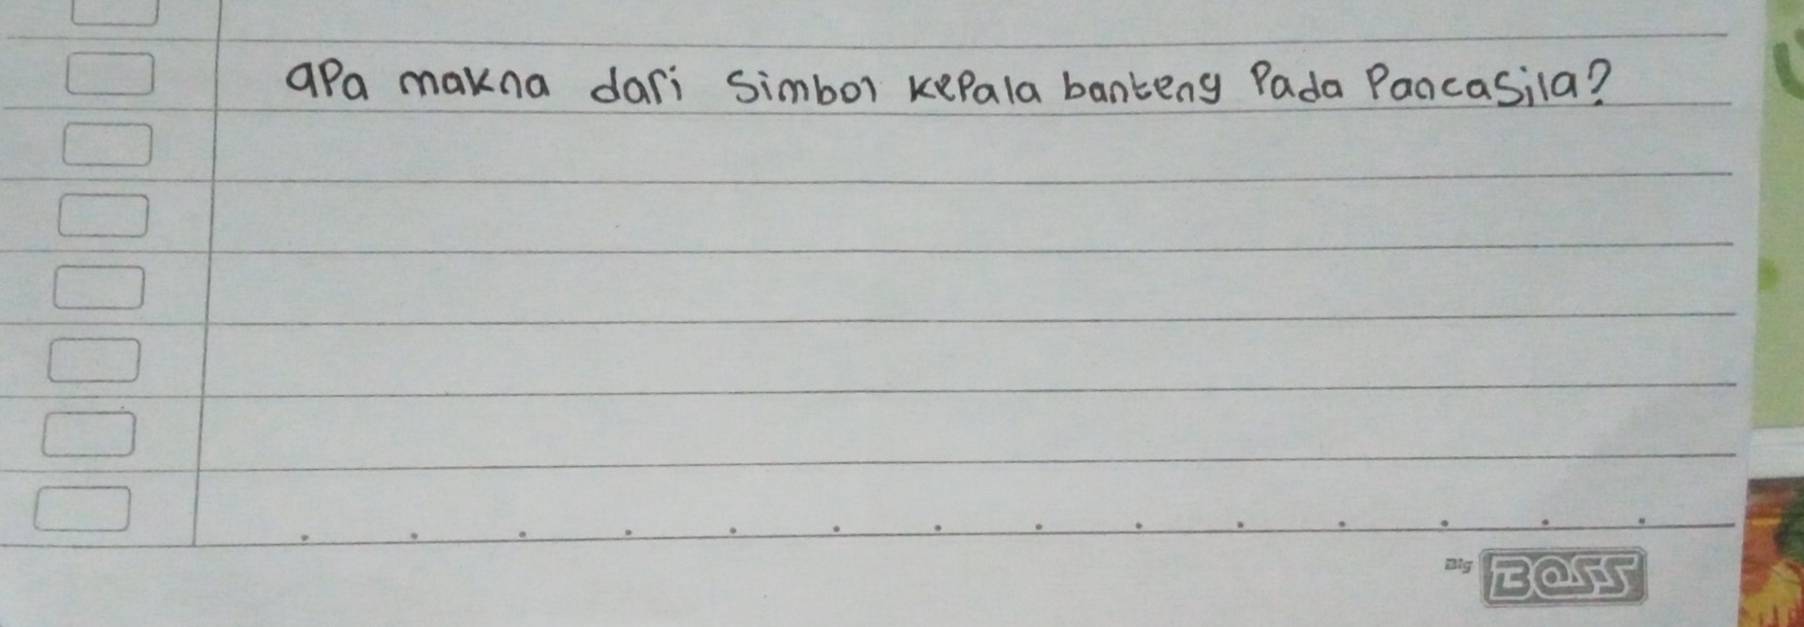 apa makna dari simbol kepala banteng pada Pancasila?
Big BOSS